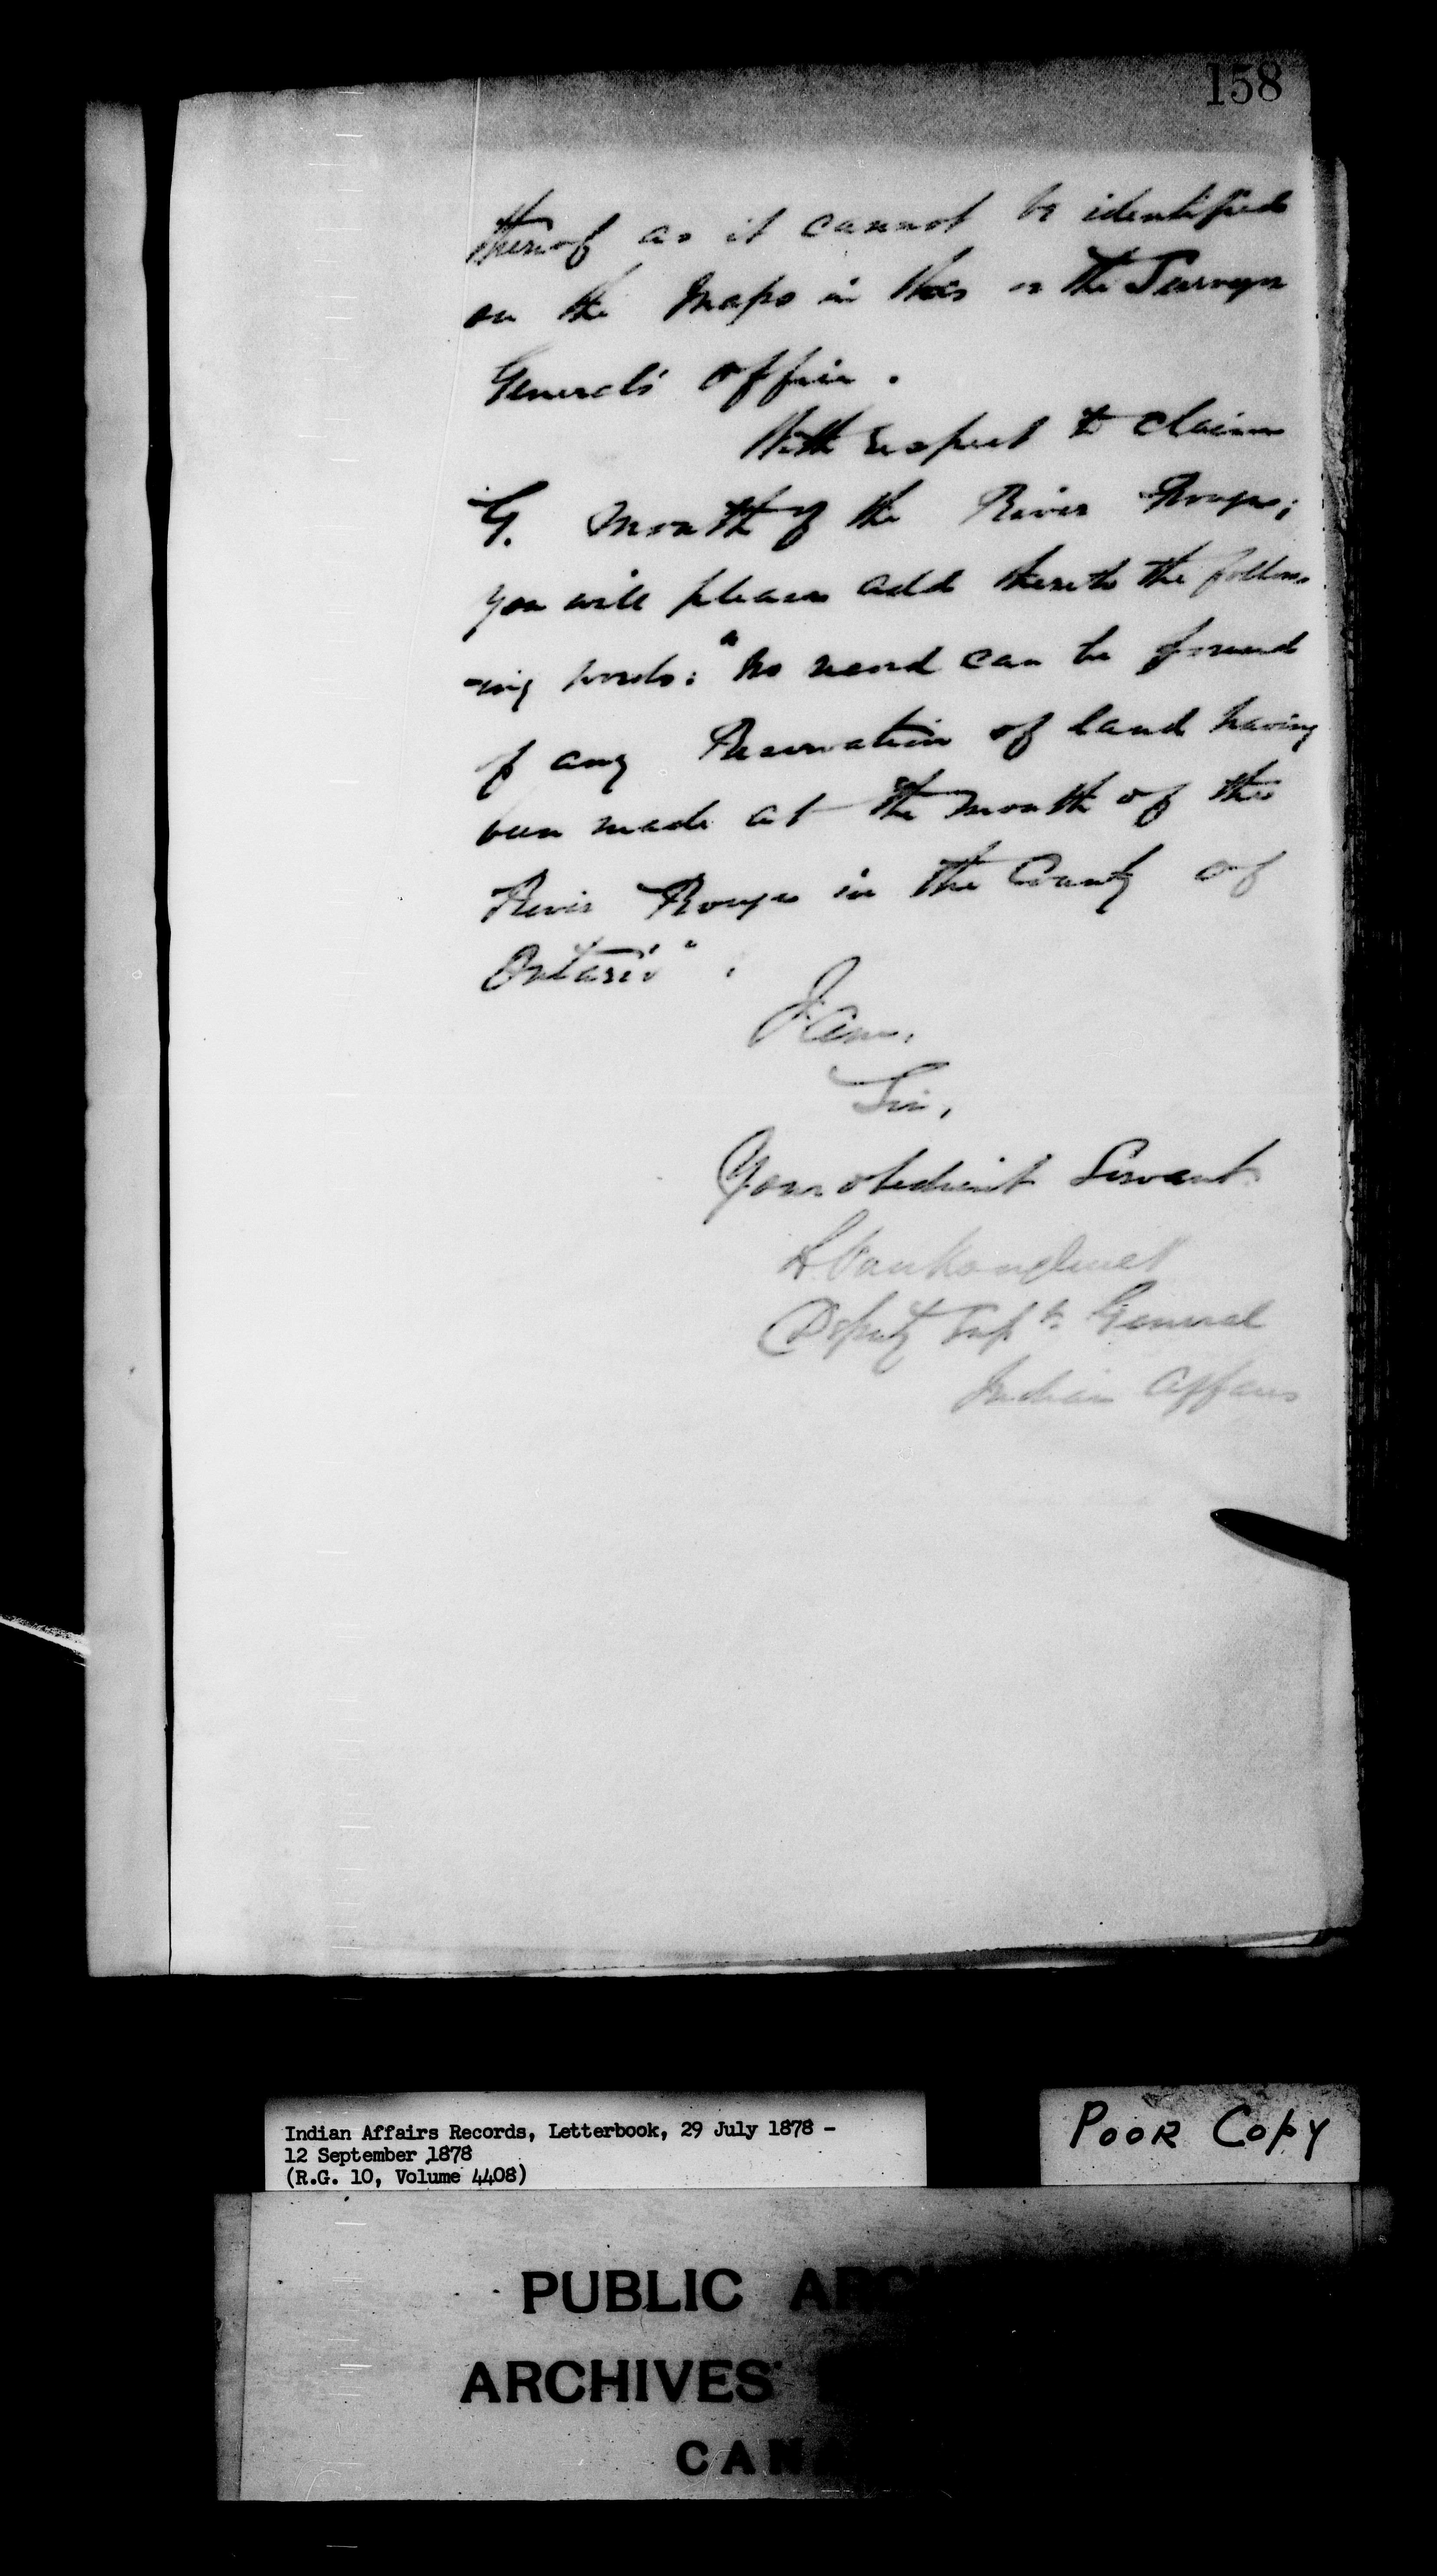 158
thereof as it cannot be identified
on the Maps in this or the Surveyor
General's Office.
With respect to claim
G. Mouth of the River Rouge;
you will please add thereto the follow-
-ing words: "No record can be found
of any Reservation of land having
been made at the Mouth of the
River Rouge in the County of
Ontario".
I am,
Sir,
Your obedient Servant
L. Vankoughnet
Deputy Supt. General
Indian Affairs
Indian Affairs Records, Letterbook, 29 July 1878 -
12 September 1878
(R.G. 10, Volume 4408)
POOR COPY
PUBLIC ARC
ARCHIVES
CANA